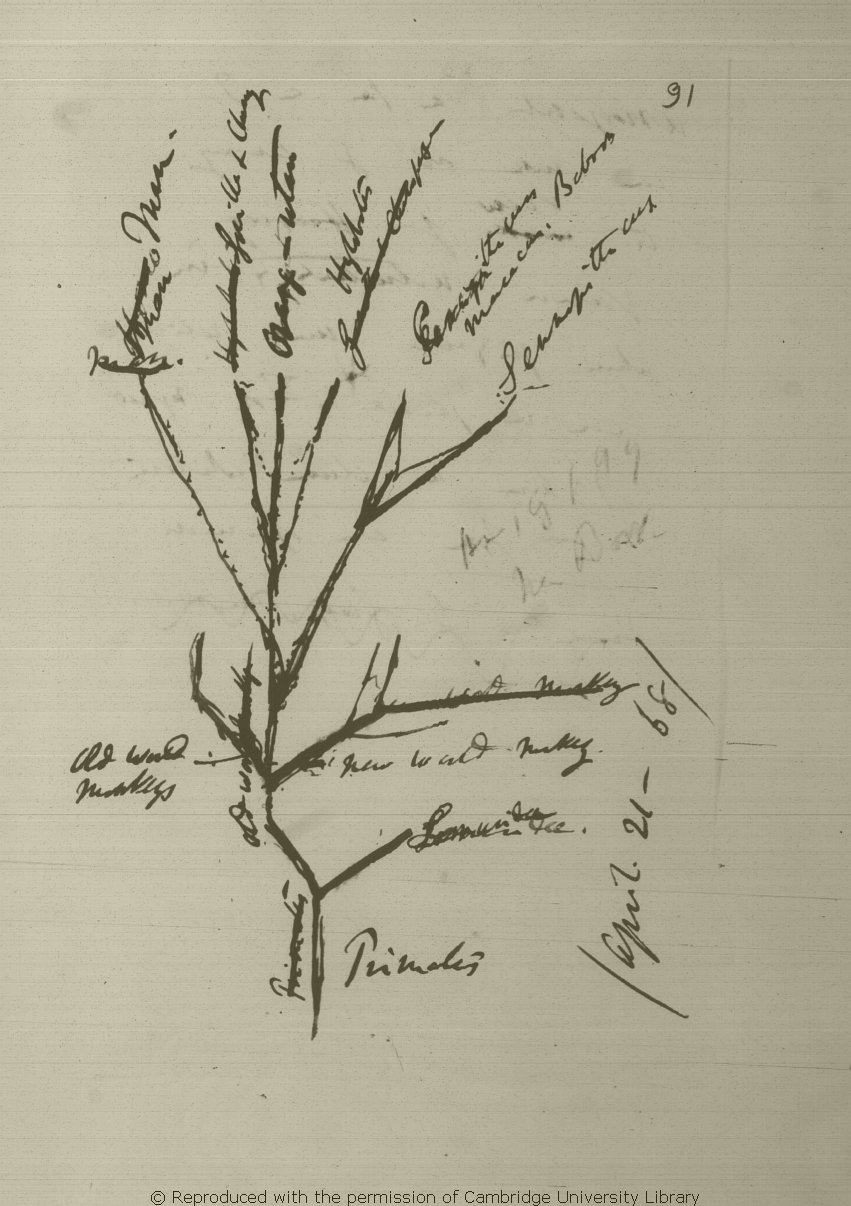 91
Man.
Man
Man.
Gorilla & Chimp
Orang-Utan
Hylobates
Cercopithecus
Macacus. Baboons
Semnopithecus
New World Monkey
Old World
Monkeys
Old World Monkeys
New World Monkey.
Lemuridae.
Primates
Primates
April 21– 68
© Reproduced with the permission of Cambridge University Library